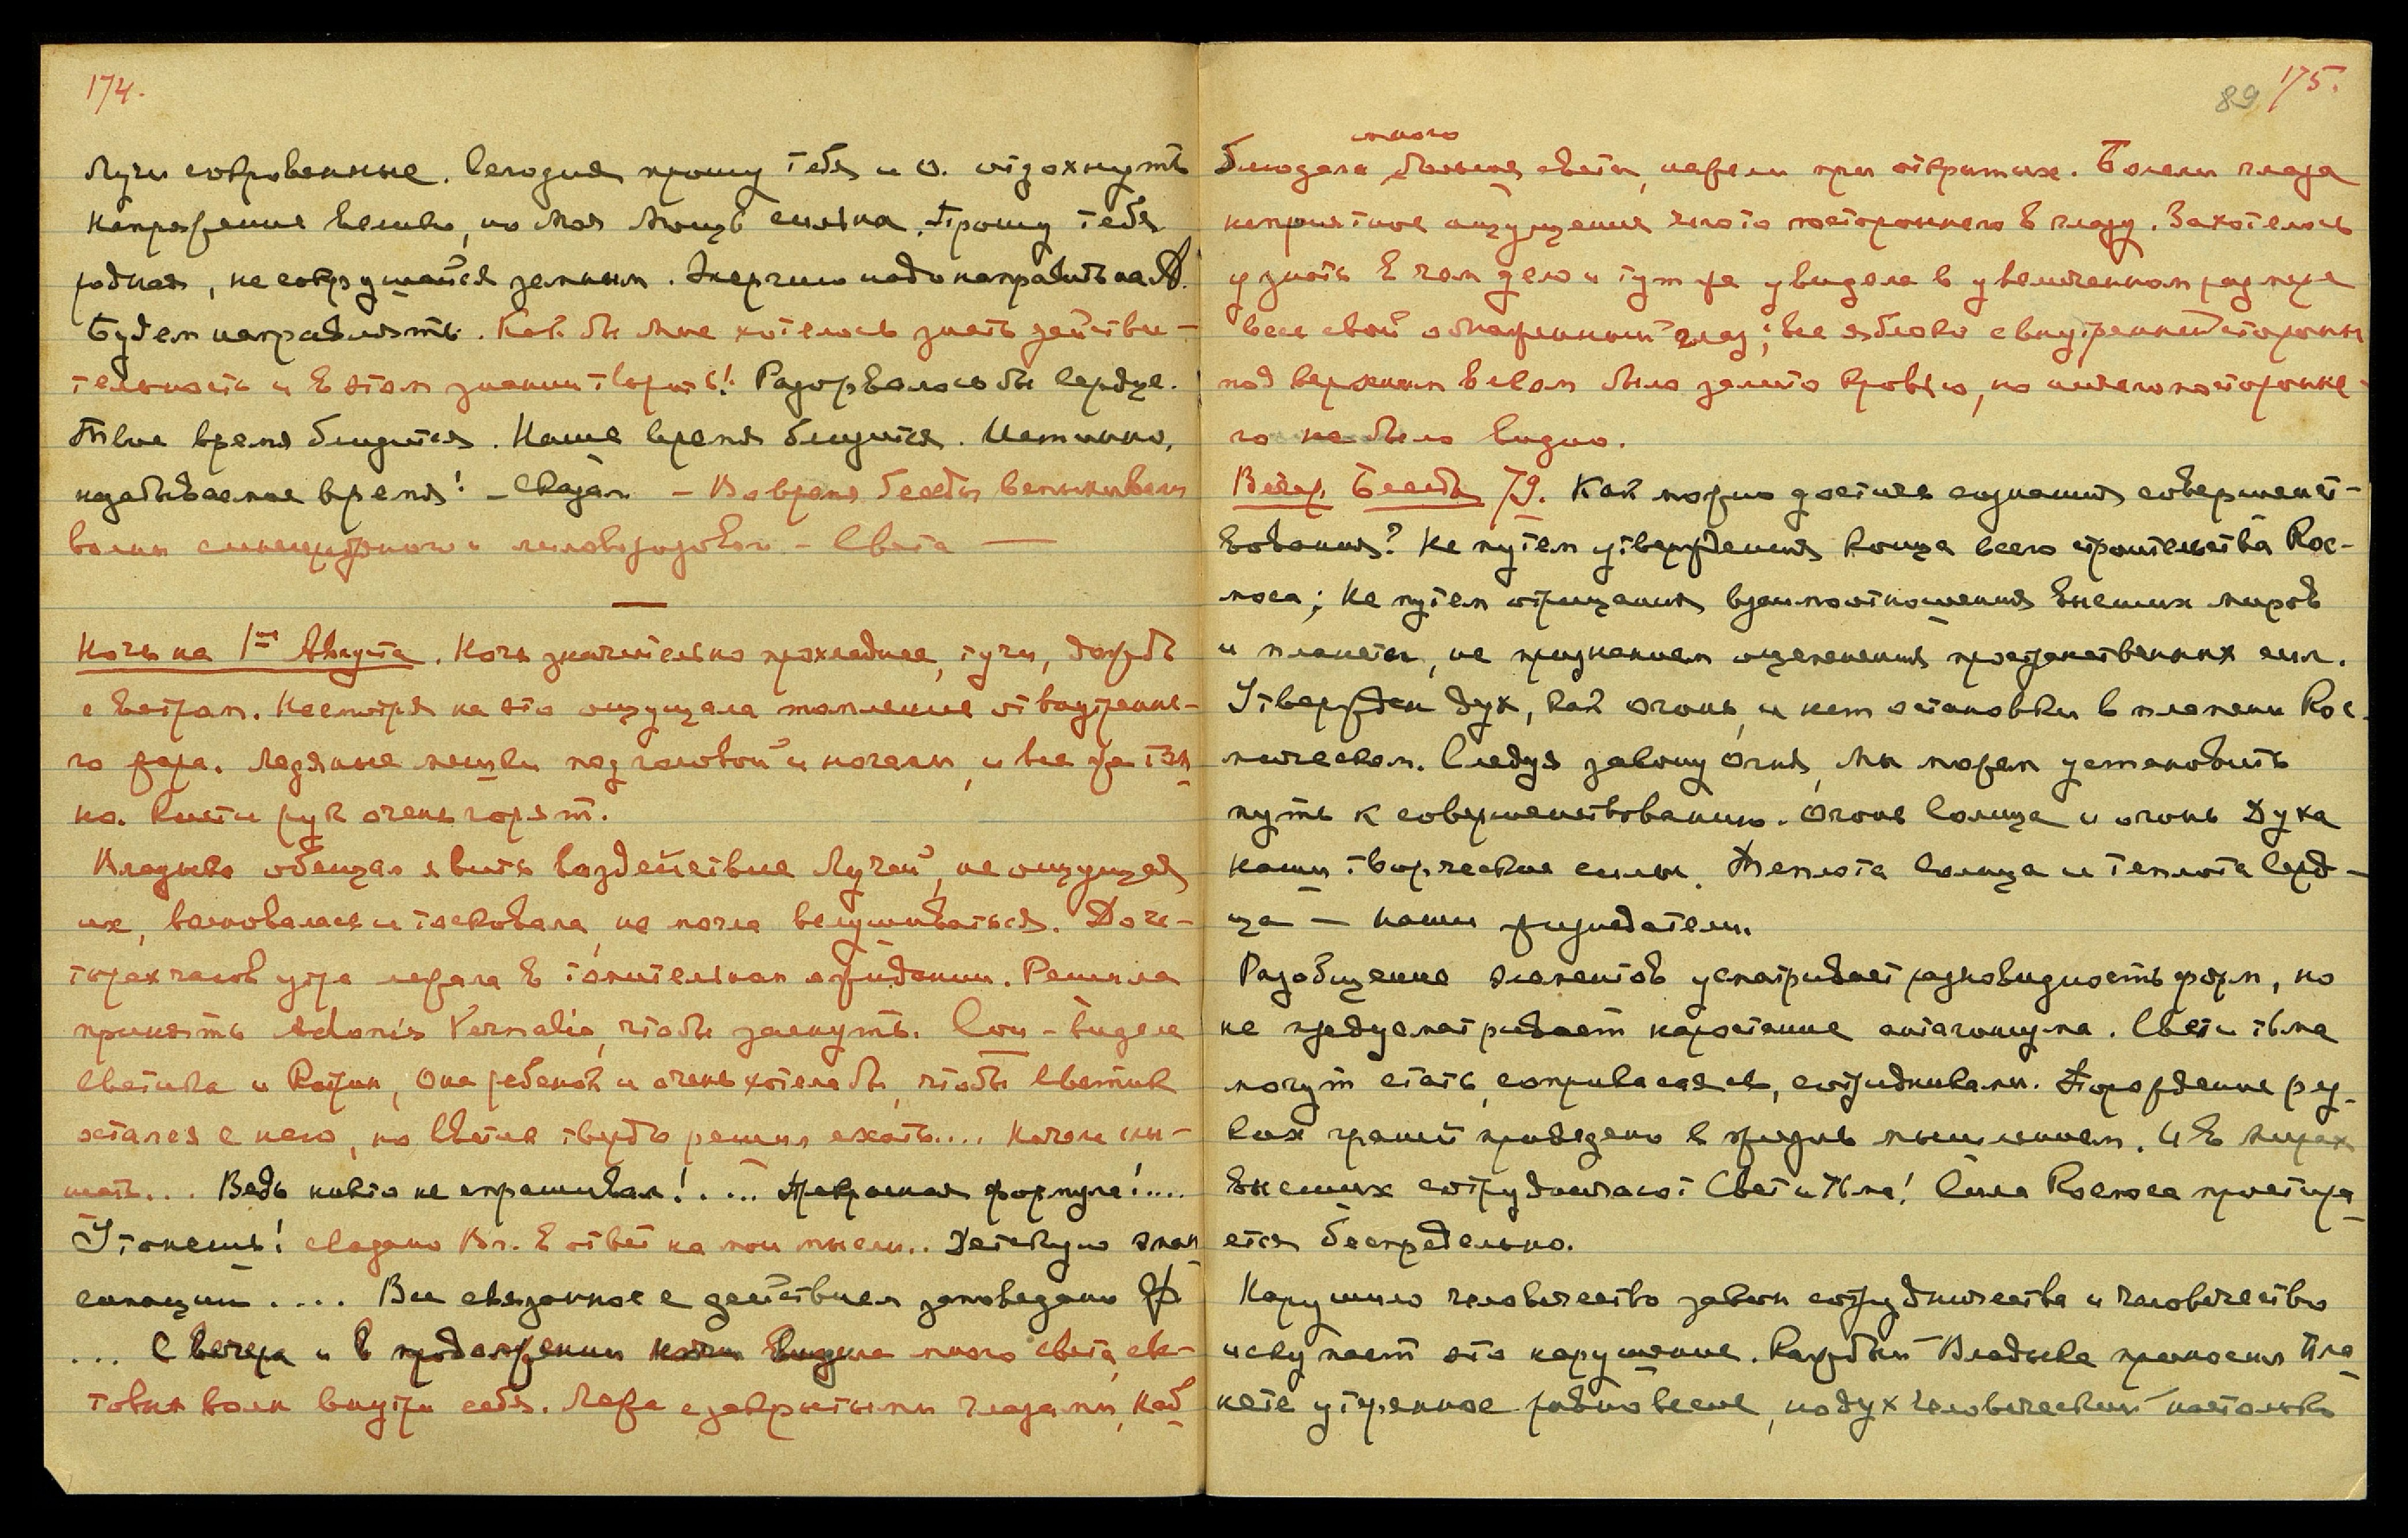 174.
Лучи сокровенные. Сегодня прошу тебя и О. отдохнуть
напряжение велико, но Моя Мощь сильна. Прошу тебя
родная, не сокрушайся земным. Энергию надо направить на
Будем направлять. Как бы мне хотелось знать действи-
тельность и в этом знании творить! Разорвалось бы Сердце.
Твое время близится. Наше время близится. Истинно,
незабываемое время! – Сказал. – Во время беседы вспыхивали
волны и лиловорозовом – Света —
Ночь на 1ое Августа. Ночь значительно прохладнее, тучи, дождь
с ветром. Несмотря на это ощущала томление от внутренне-
го жара. Ледяные мешки под головой и ногами, и все же том-
но. Кисти рук очень горят.
Владыка обещал явить воздействие Лучей, не ощущая
их, волновалась и тосковала, не могла вслушиваться. До че-
тырех часов утра лежала в томительном ожидании. Решила
принять Adonis Vernalis, чтобы заснуть. Сон – видела
Светика и она ребенок и очень хотела бы, чтобы Светик
остался с нею, но Светик твердо решил ехать.... Начали слы-
шать... Ведь никто не спрашивал!.... Прекрасная формула!....
Утонешь! сказано Вл. в ответ на мои мысли.. Детскую эман
сипацию .... Все связанное с действием заповедано
... С вечера и в продолжении ночи видела много света, све-
товых волн внутри себя. Лежа с закрытыми глазами, наб
89 175.
много
блюдала больше света, нежели при открытых. Болели глаза
неприятное ощущение чего то постороннего в глазу. Захотелось
узнать в чем дело и тут же увидела в увеличенном размере
весь свой обнаженный глаз; все яблоко с внутренней стороны
под верхним веком было залито кровью, но ничего посторонне-
го не было видно.
Вечер. Беседа 79. Как можно достичь сознания совершенст-
вования? Не путем утверждения конца всего строительства Кос-
моса; не путем отрицания взаимоотношения высших миров
и планеты, не признанием оцепенения пространственных сил.
Утвержден дух, как огонь, и нет остановки в пламени Кос-
мическом. Следуя закону Огня, мы можем установить
путь к совершенствованию. Огонь Солнца и огонь Духа
наши творческие силы. Теплота Солнца и теплота Серд-
ца — наши жизнедатели.
Разобщение элементов усматривает разновидность форм, но
не предусматривает нарастание антагонизма. Свет и тьма
могут стать, соприкасаясь, сотрудниками. Порождение рез-
ких граней проведено в жизнь мышлением. И в мирах
высших сотрудничают Свет и Тьма! Сила Космоса простира-
ется беспредельно.
Нарушило человечество закон сотрудничества и человечество
искупает это нарушение. Каждый Владыка приносил Пла-
нете утерянное равновесие, но дух человеческий настолько